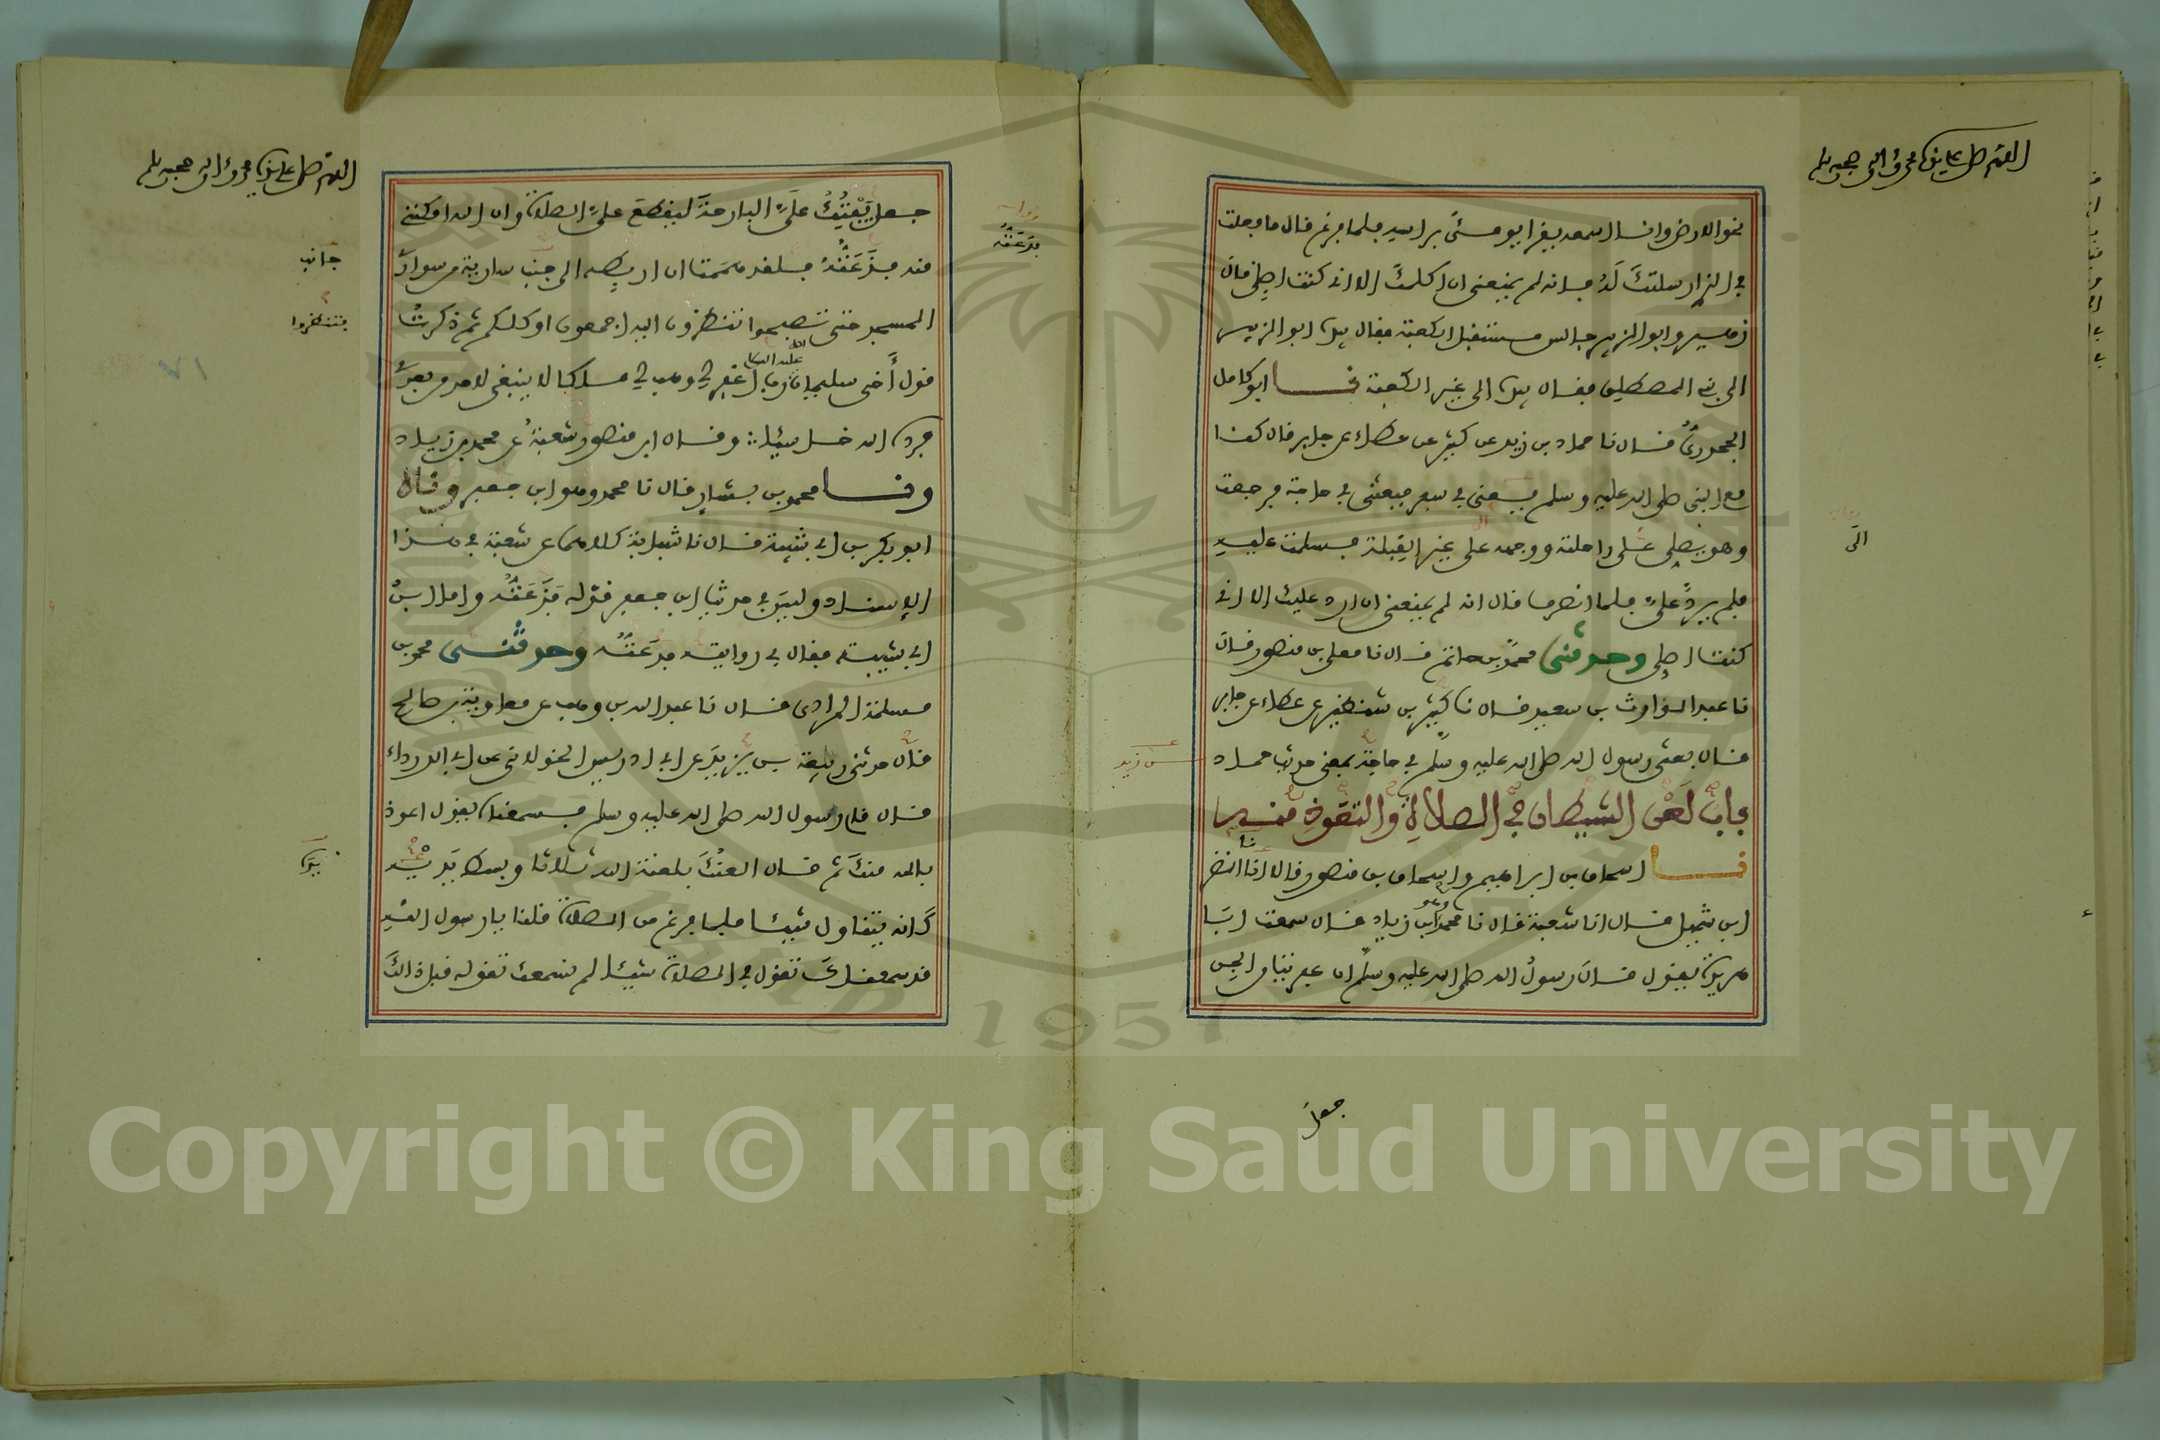 اللهم صل على سيدنا محمد وعلى اله وصحبه وسلم
نحو الارض وانا اسمعه يقرا يومئ براسه فلما فرغ قال ما فعلت
في الذي ارسلتك له فانه لم يمنعني ان اكلمك الا اني كنت اصلي قال
زهير وابو الزبير جالس مستقبل الكعبة فقال بيده ابو الزبير
الى بني المصطلق فقال بيده الى غير الكعبة نا ابو كامل
الجحدري قال نا حماد بن زيد عن كثير عن عطاء عن جابر قال كنا
مع النبي صلى الله عليه وسلم يعني في سفر فبعثني في حاجة فرجعت
وهو يصلي على راحلته ووجهه على غير القبلة فسلمت عليه
الى
فلم يرد علي فلما انصرف قال انه لم يمنعني ان ارد عليك الا اني
كنت اصلي وحدثني محمد بن حاتم قال نا معلى بن منصور قال
نا عبد الوارث بن سعيد قال نا كثير بن شنظير عن عطاء عن جابر
قال بعثني رسول الله صلى الله عليه وسلم في حاجة بمعنى حديث حماد
بن زيد
باب لعن الشيطان في الصلاة والتعوذ منه
نا اسحاق بن ابراهيم واسحاق بن منصور قالا انا النضر
ابن شميل قال انا شعبة قال نا محمد وهو ابن زياد قال سمعت ابا
هريرة يقول قال رسول الله صلى الله عليه وسلم ان عفريتا من الجن
جعل
اللهم صل على سيدنا محمد وعلى اله وصحبه وسلم
جعل يفتك علي البارحة ليقطع علي الصلاة وان الله امكنني
رواية
فدعته
منه فذعته فلقد هممت ان اربطه الى جنب سارية من سواري
جانب
المسجد حتى تصبحوا تنظرون اليه اجمعون او كلكم ثم ذكرت
فتنظروا
قول أخي سليمان عليه السلام رب اغفر لي وهب لي ملكا لا ينبغي لاحد من بعدي
فرده الله خاسئا وقال ابن منصور شعبة عن محمد بن زياد
ونا محمد بن بشار قال نا محمد وهو ابن جعفر وقال
ابو بكر بن ابي شيبة قال نا شبابة كلاهما عن شعبة في هذا
الاسناد وليس في حديث ابن جعفر قوله فذعته واما ابن
ابي شيبة فقال في روايته فدعته وحدثني محمد بن
مسلمة المرادي قال نا عبد الله بن وهب عن معاوية بن صالح
قال حدثني ربيعة بن يزيد عن ابي ادريس الخولاني عن ابي الدرداء
قال قام رسول الله صلى الله عليه وسلم فسمعناه يقول اعوذ
بالله منك ثم قال العنك بلعنة الله ثلاثا وبسط يديه
يده
كانه يتناول شيئا فلما فرغ من الصلاة قلنا يا رسول الله
قد سمعناك تقول في الصلاة شيئا لم نسمعك تقوله قبل ذالك
Copyright © King Saud University
1957